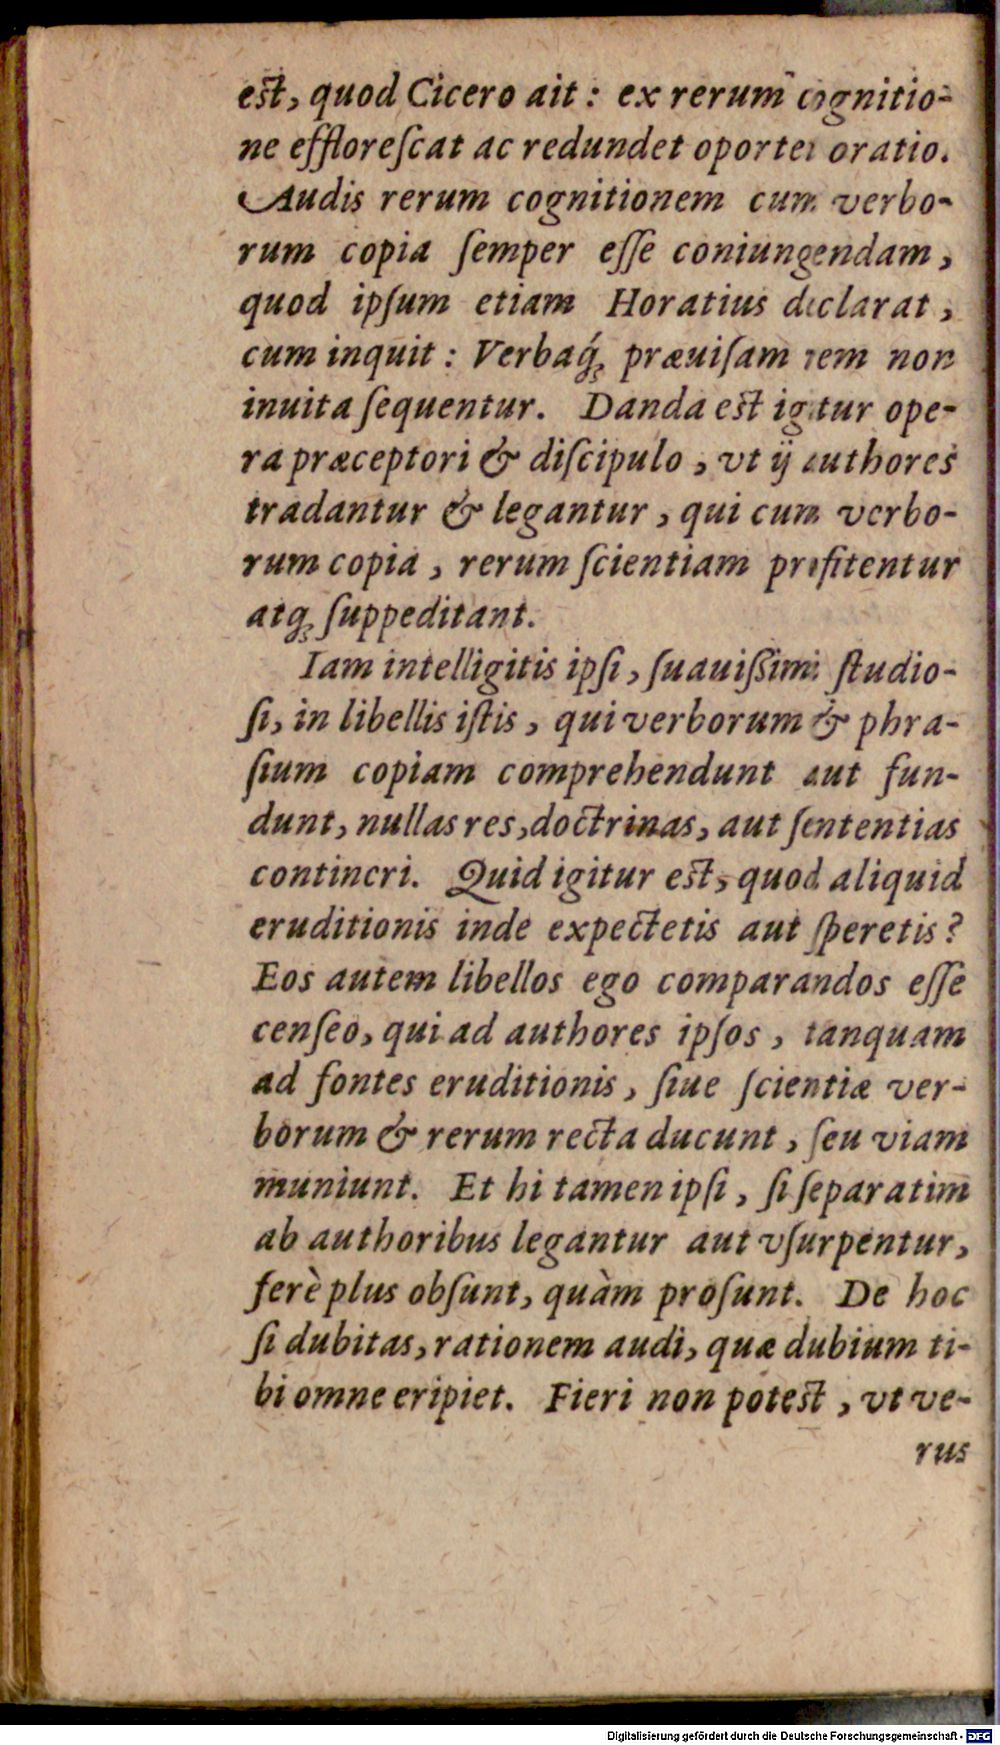 est, quod Cicero ait: ex rerum cognitio-
ne effloreſcat ac redundet oportet oratio.
Audis rerum cognitionem cum verbo-
rum copia ſemper eſſe coniungendam,
quod ipſum etiam Horatius declarat,
cum inquit: Verbaq́; præuiſam rem non
inuita ſequentur. Danda est igitur ope-
ra præceptori & diſcipulo, vt ij authores
tradantur & legantur, qui cum verbo-
rum copia, rerum ſcientiam profitentur
atq; ſuppeditant.
Iam intelligitis ipſi, ſuauißimi ſtudio-
ſi, in libellis iſtis, qui verborum & phra-
ſium copiam comprehendunt aut fun-
dunt, nullas res, doctrinas, aut ſententias
contineri. Quid igitur est, quod aliquid
eruditionis inde expectetis aut ſperetis?
Eos autem libellos ego comparandos eſſe
cenſeo, qui ad authores ipſos, tanquam
ad fontes eruditionis, ſiue ſcientiæ ver-
borum & rerum recta ducunt, ſeu viam
muniunt. Et hi tamen ipſi, ſi ſeparatim
ab authoribus legantur aut vſurpentur,
ferè plus obſunt, quàm proſunt. De hoc
ſi dubitas, rationem audi, quæ dubium ti-
bi omne eripiet. Fieri non potest, vt ve-
rus
Digitalisierung gefördert durch die Deutsche Forschungsgemeinschaft - DFG